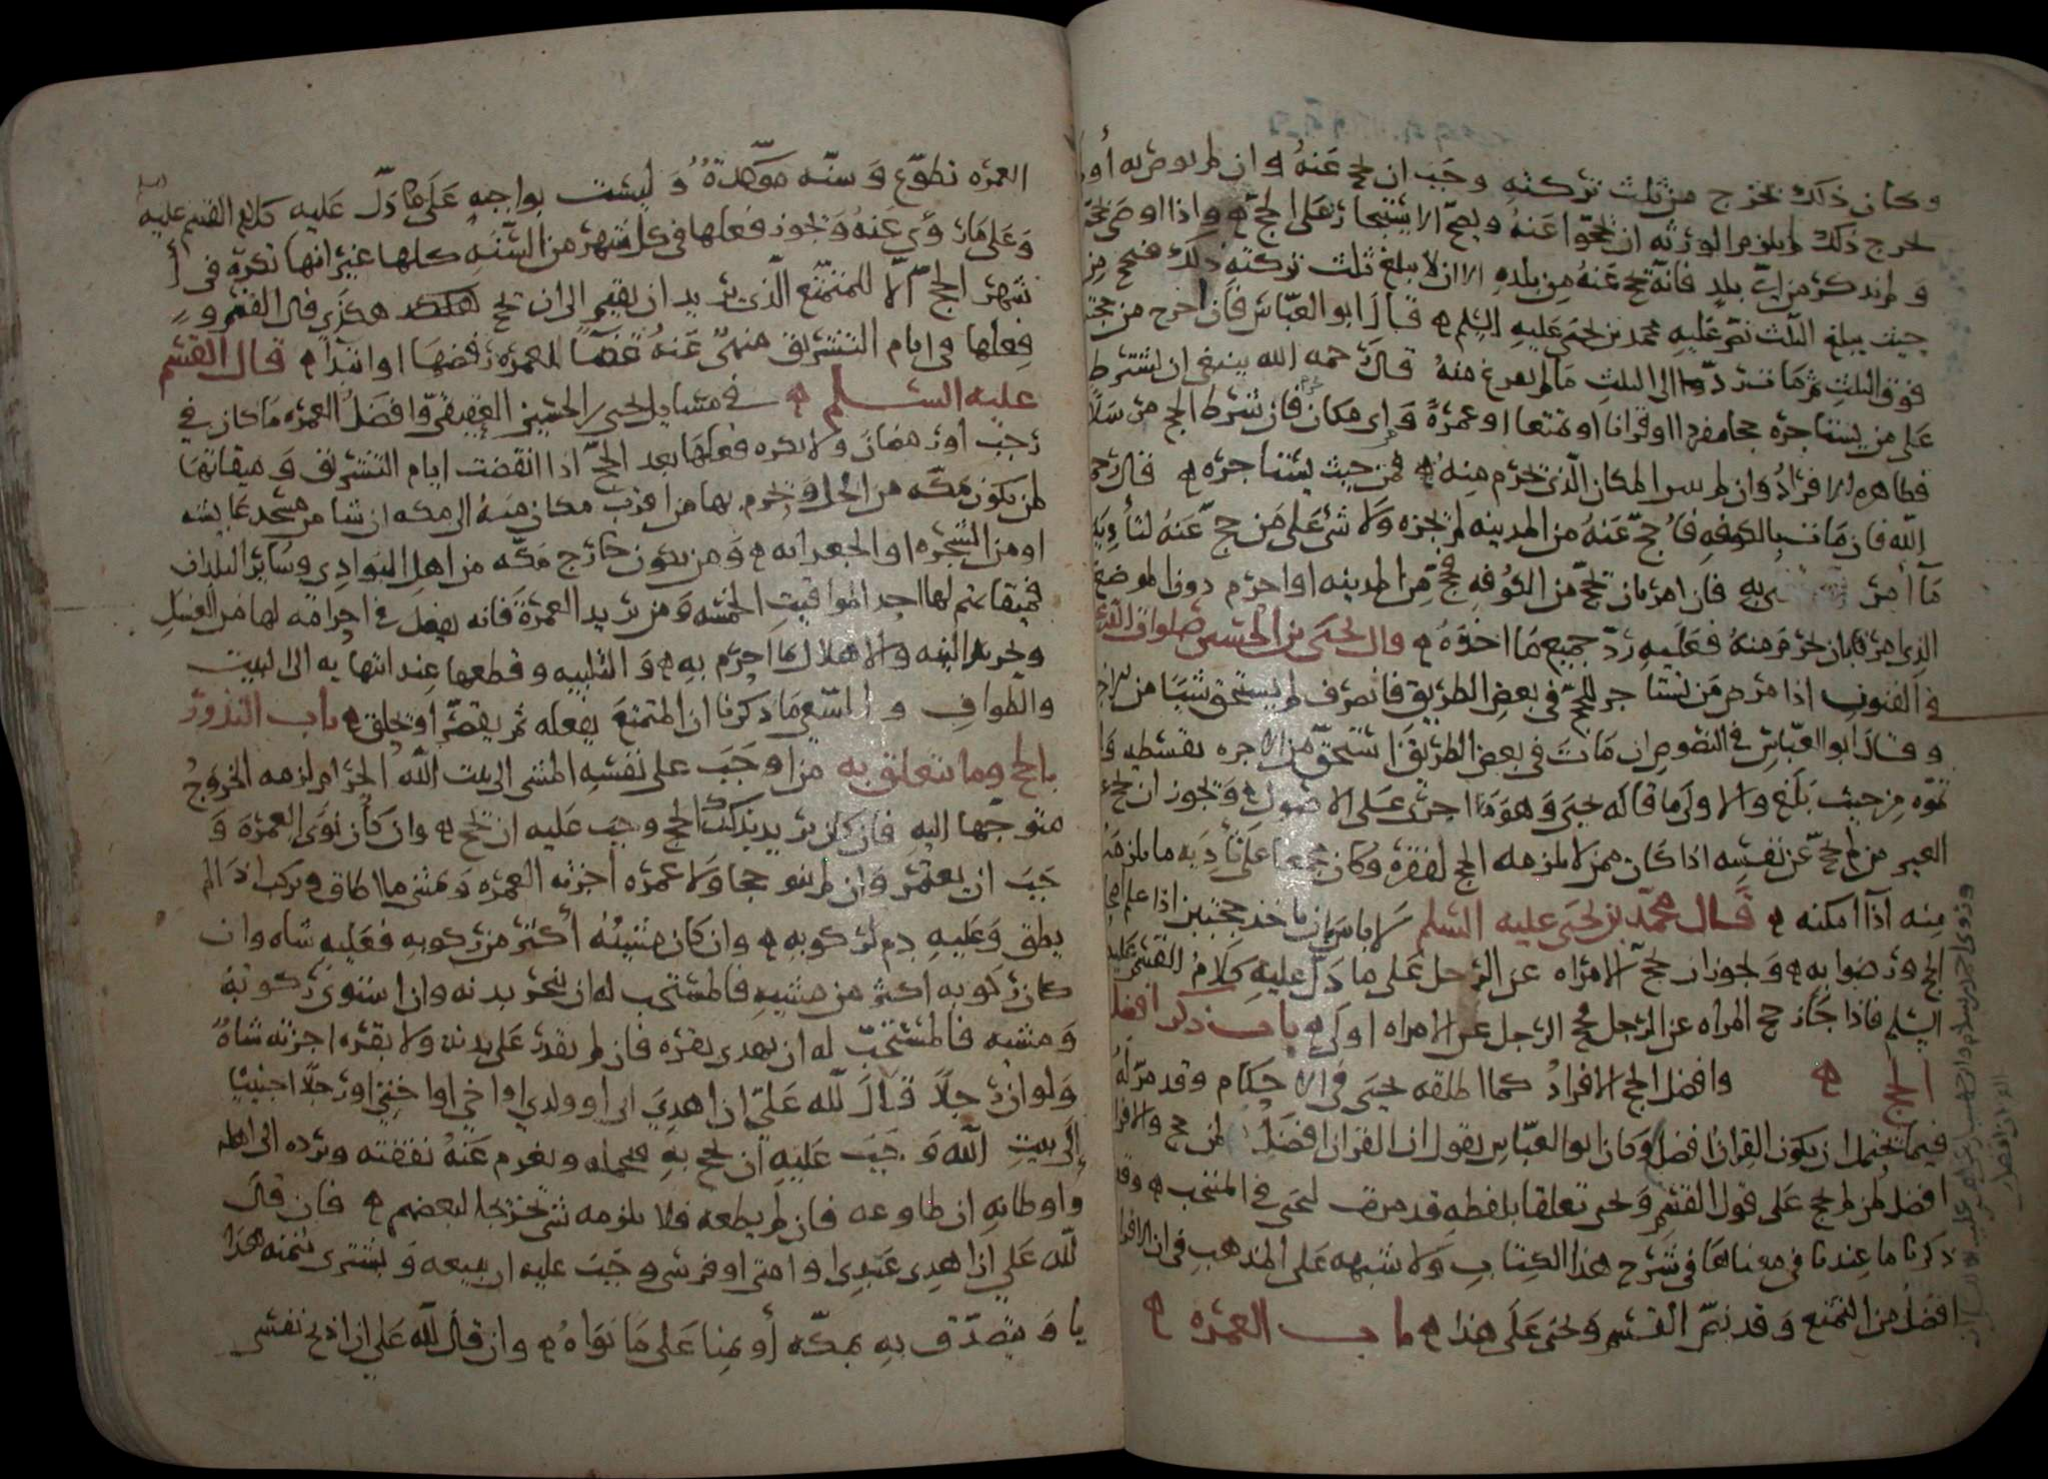 وكان ذلك يخرج من ثلث تركته وجب ان يحج عنه وان لم يوص به أو لم
يخرج ذلك لم يلزم الورثه ان يحجوا عنه ويصح الاستيجار على الحج واذا اوصى بحجه
ولم يذكر من اي بلد فانه يحج عنه من بلده الا ان لا يبلغ ثلث تركته ذلك فيحج من
حيث يبلغ الثلث نص عليه محمد بن يحيى عليه السلم قال ابو العباس فان اخرج من حجته
فوق الثلث ثم مات رد الى الثلث ما لم يفرغ منه قال رحمه الله ينبغي ان يشترط
على من يستاجره حجا مفردا او قرانا او تمتعا او عمرة واي مكان فان شرط الحج مرسلا
فظاهره الافراد وان لم يبين المكان الذي يحرم منه فمن حيث يستاجره قال رحمه
الله فان مات بالكوفه فاحج عنه من المدينه لم يجزه ولا شي على من حج عنه لتأديه
ما امر به فان امر بان يحج من الكوفه فحج من المدينه او احرم دون الموضع
الذي امر بان يحرم منه فعليه رد جميع ما اخذه قال يحيى بن الحسين صلوات الله
في الفنون اذا مرض من يستاجر للحج في بعض الطريق فانصرف لم يستحق شيا من الاجره
وقال ابو العباس في النصوص ان مات في بعض الطريق استحق من الاجره بقسطه
من حيث بلغ والاولى ما قاله يحيى وهو ما اجرى على الاصول ويجوز ان يحج عن
الغير من لم يحج عن نفسه اذا كان ممن لا يلزمه الحج لفقره وكان على تأديه ما يلزمه
منه اذا امكنه قال محمد بن يحيى عليه السلم لا باس بان ياخذ حجتين اذا علم اهل
الحج ورضوا به ويجوز ان تحج الامراه عن الرجل على ما دل عليه كلام القسم عليه
السلم فاذا جاز حج المراه عن الرجل فحج الرجل عن الامراه اولى باب ذكر افضل
الحج وافضل الحج الافراد كما اطلقه يحيى في الاحكام وقد مر له
فيما يحتمل ان يكون القران افضل وكان ابو العباس يقول ان القران افضل لمن حج والافراد
افضل لمن لم يحج على قول القسم ويحيى تعلقا بلفظه قد مرت ليحيى في المنتخب وقد
ذكرنا ما عندنا في معناها في شرح هذا الكتاب ولا شبهه على المذهب في ان الافراد
افضل من التمتع وقد نص القسم ويحيى على هذا باب العمره
العمره تطوع وسنه موكدة وليست بواجبه على ما دل عليه كلام القسم عليه السلم
وعلى ما روي عنه ويجوز فعلها في كل شهر من السنه كلها غير انها تكره في أ
شهر الحج الا للمتمتع الذي يريد ان يقيم الى ان يحج هكذي قال القسم و
فعلها في ايام التشريق منهي عنه للعمره رفضها او ابتدا قال القسم
عليه السلم في مسايل يحيى بن الحسين العقيقي وافضل العمره ما كان في
رجب او رمضان ولا يكره فعلها بعد الحج اذا انقضت ايام التشريق وميقاتها
لمن يكون بمكه من الحل ويحرم بها من اقرب مكان منه الى مكه ان شا من مسجد عايشه
او من الشجره او الجعرانه ومن يكون خارج مكه من اهل البوادي وساير البلدان
فميقاتهم لها احد المواقيت الخمسه ومن يريد العمرة فانه يفعل في احرامه لها من الغسل
وتجريد النيه والاهلال بما احرم به والتلبيه وقطعها عند انتهايه الى البيت
والطواف والسعي ما ذكرنا ان المتمتع يفعله ثم يقصر او يحلق باب النذور
بالحج وما يتعلق به من اوجب على نفسه المشي الى بيت الله الحرام لزمه الخروج
متوجها اليه فان كان يريد بذلك الحج وجب عليه ان يحج وان كان نوى العمرة و
جب ان يعتمر وان لم ينو حجا ولا عمره اجزته العمره ويمشي ما اطاق ويركب اذا لم
يطق وعليه دم لركوبه وان كان مشيه أكثر من ركوبه فعليه شاه وان
كان ركوبه اكثر من مشيه فالمستحب له ان ينحر بدنه وان استوى ركوبه
ومشيه فالمستحب له ان يهدي بقره فان لم يقدر على بدنه ولا بقره اجزته شاه
ولو ان رجلا قال لله علي ان اهدي ابي او ولدي او اخي او اختي او رجلا اجنبيا
إلى بيت الله وجب عليه ان يحج به فيحمله ويغرم عنه نفقته ويرده الى اهله
واوطانه ان طاوعه فان لم يطعه فلا يلزمه شي تخريجا لبعضهم فان قال
لله علي ان اهدي عبدي او امتي او فرسي وجب عليه ان يبيعه ويشتري بثمنه هدا
يا ويتصدق به بمكه أو بمنا على ما نواه وان قال لله علي ان اذبح نفسي